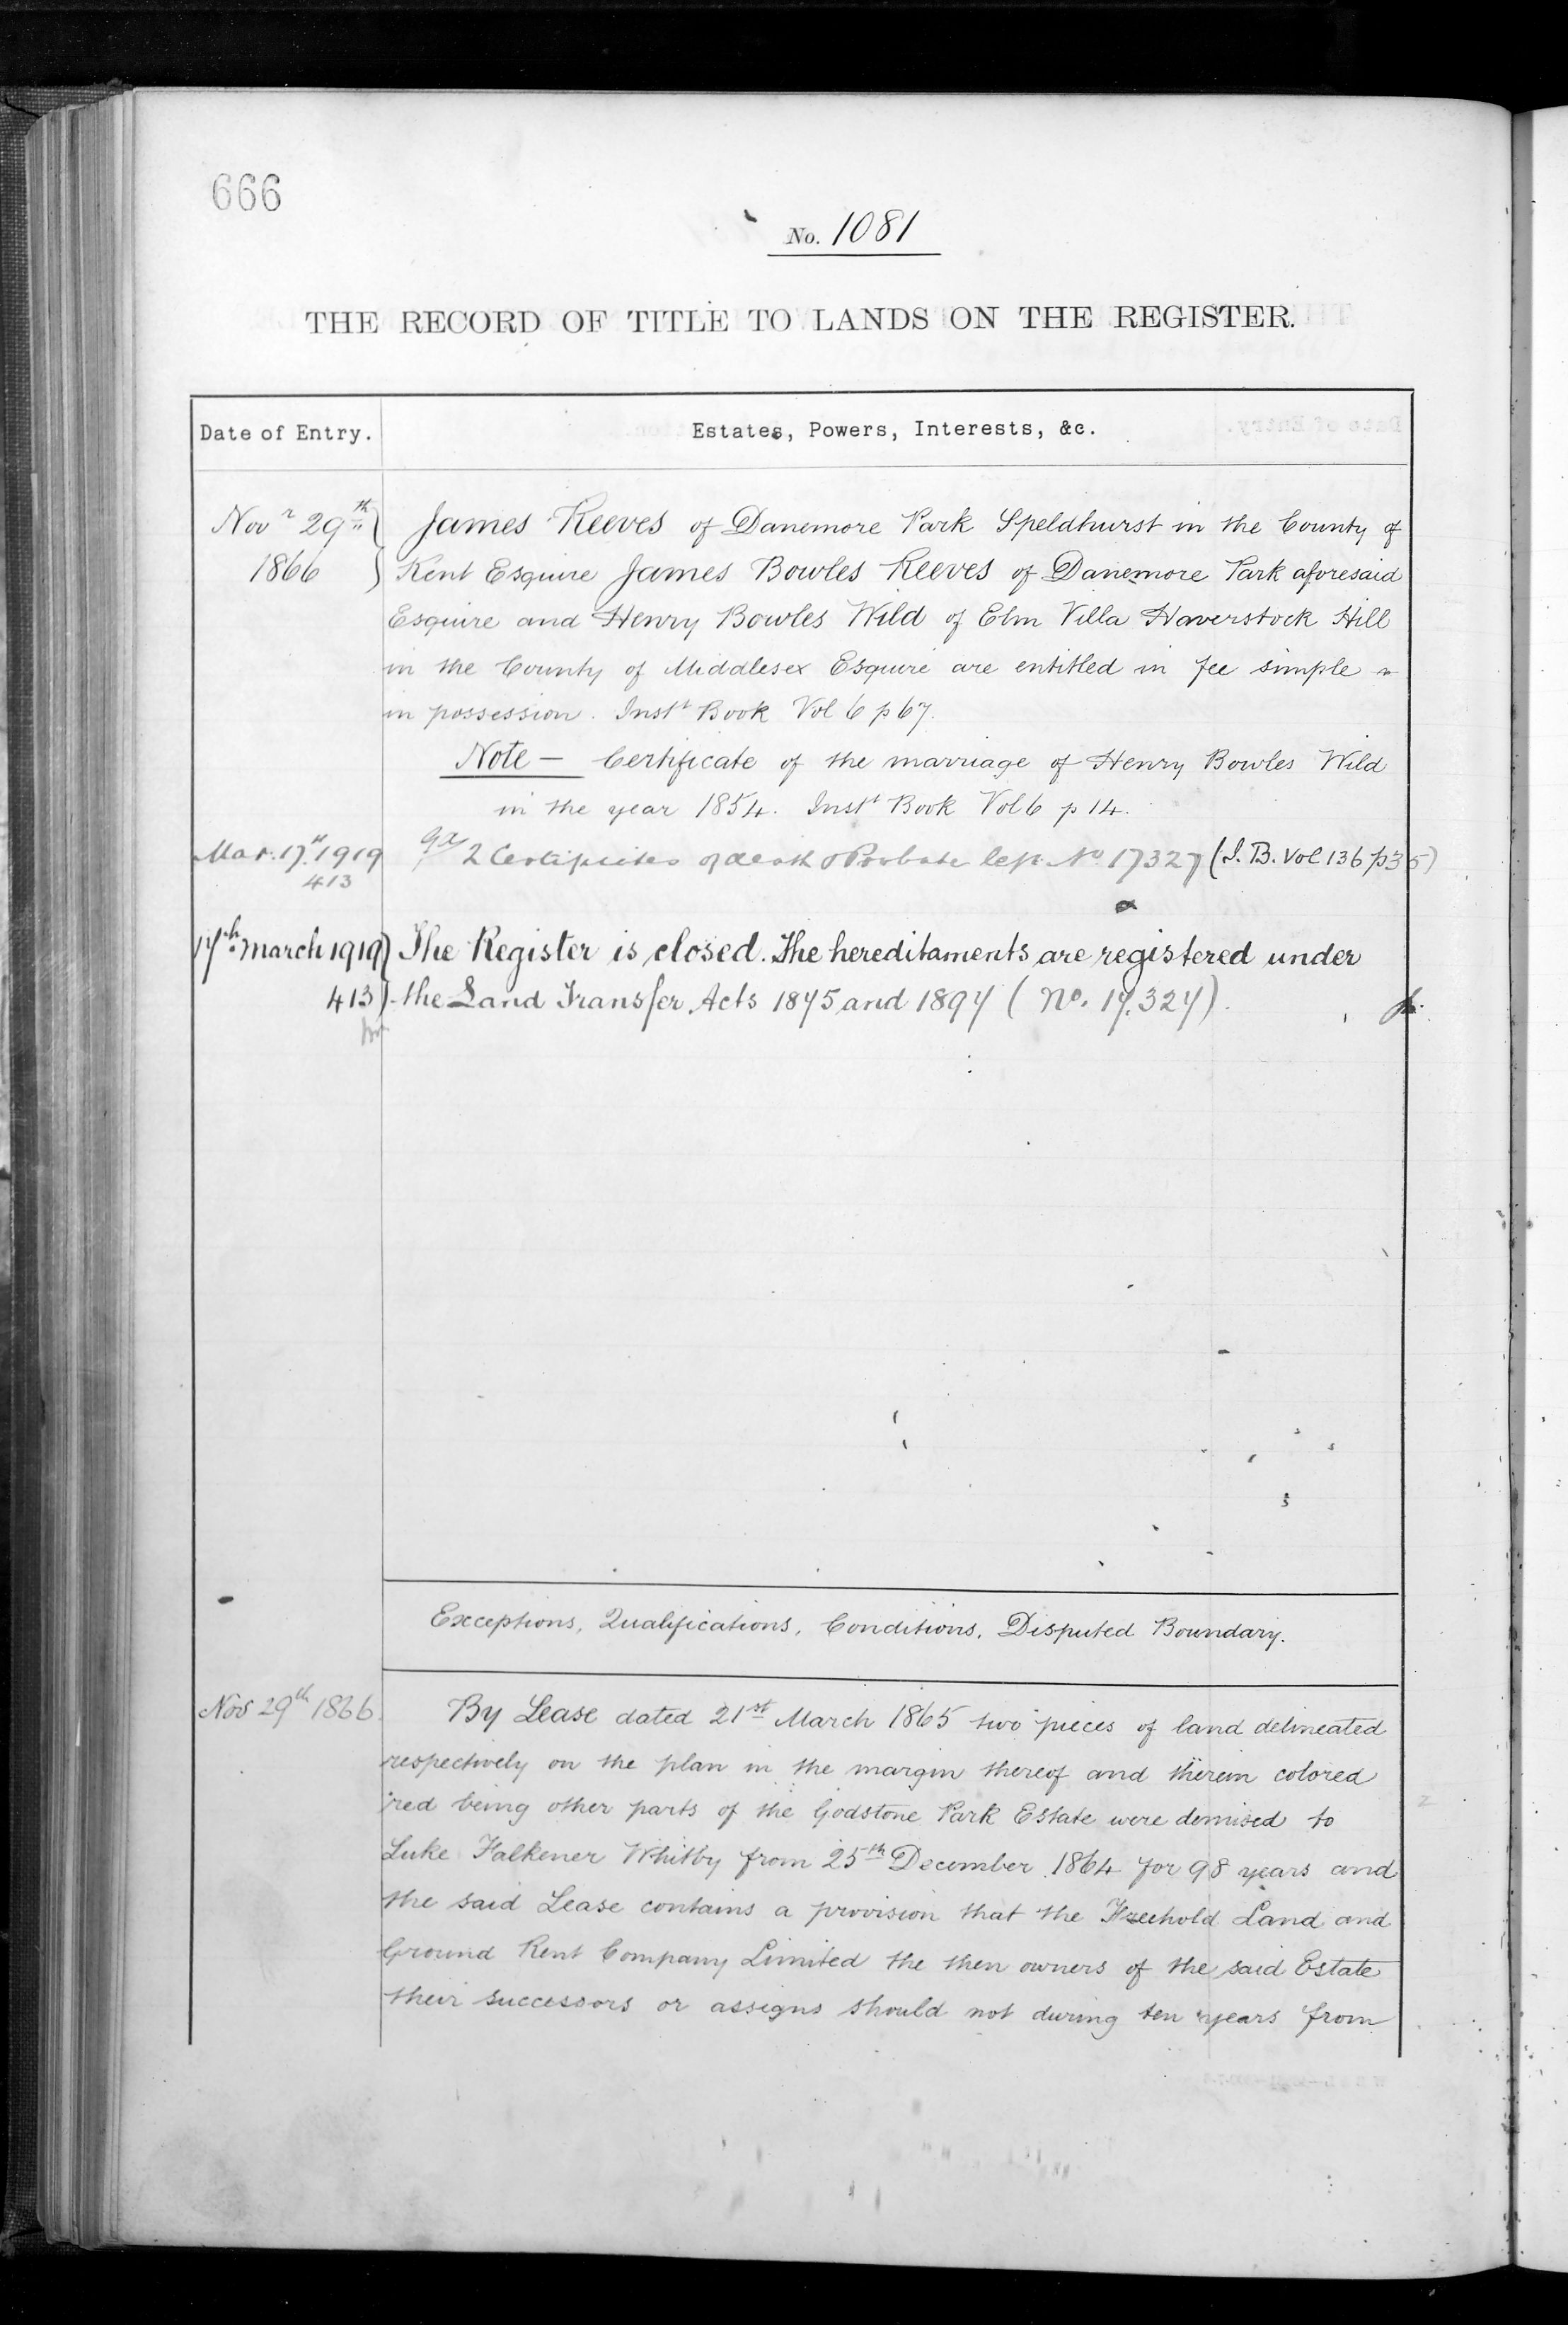 666
No. 1081
THE RECORD OF TITLE TO LANDS ON THE REGISTER.
Date of Entry. Estates, Powers, Interests, &c.
Novr 29th James Reeves of Danemore Park Speldhurst in the County of
1866 Kent Esquire James Bowles Reeves of Danemore Park aforesaid
Esquire and Henry Bowles Wild of Elm Villa Haverstock Hill
in the County of Middlesex Esquire are entitled in fee simple
in possession. Instt Book Vol 6 p 67.
Note — Certificate of the marriage of Henry Bowles Wild
in the year 1854. Instt Book Vol 6 p 14.
Mar. 17th 1919 2 Certificates of death & Probate No 17327 (I.B. Vol 136 p35)
413
17th March 1919 The Register is closed. The hereditaments are registered under
413 the Land Transfer Acts 1875 and 1897 (No. 17.327).
Exceptions, Qualifications, Conditions, Disputed Boundary.
Nov 29th 1866. By Lease dated 21st March 1865 two pieces of land delineated
respectively on the plan in the margin thereof and therein colored
red being other parts of the Godstone Park Estate were demised to
Luke Falkener Whitby from 25th December 1864 for 98 years and
the said Lease contains a provision that the Freehold Land and
Ground Rent Company Limited the then owners of the said Estate
their successors or assigns should not during ten years from